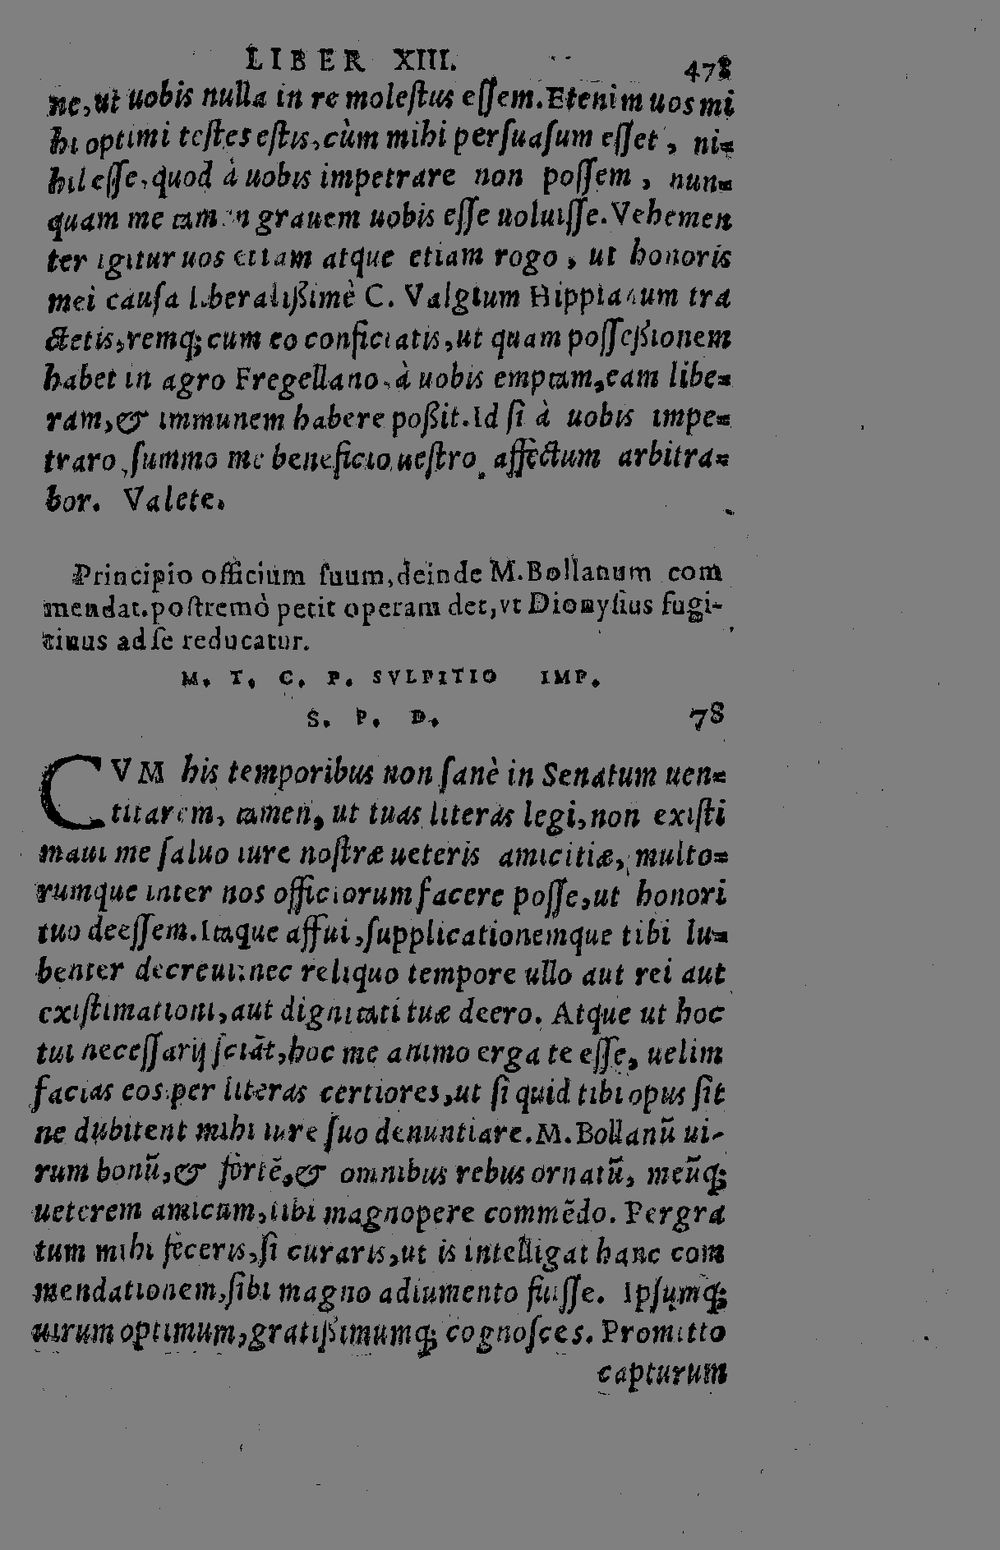 LIBER XIII. 478
ne, ut uobis nulla in re molestus essem. Etenim uos mi
hi optimi testes estis, cùm mihi persuasum esset, ni-
hil esse, quod à uobis impetrare non possem, nun-
quam me tamen grauem uobis esse uoluisse. Vehemen
ter igitur uos etiam atque etiam rogo, ut honoris
mei causa liberalißimè C. Valgium Hippianum tra
ctetis, remq; cum eo conficiatis, ut quam posseßionem
habet in agro Fregellano, à uobis emptam, eam libe-
ram, & immunem habere poßit. Id si à uobis impe-
traro, summo me beneficio uestro affectum arbitra-
bor. Valete.
Principio officium suum, deinde M. Bollanum com
mendat. postremò petit operam det, vt Dionysius fugi-
tiuus ad se reducatur.
M. T. C. P. SVLPITIO IMP.
S. P. D. 78
CVM his temporibus non sanè in Senatum uen-
titarem, tamen, ut tuas literas legi, non existi
maui me saluo iure nostræ ueteris amicitiæ, multo-
rumque inter nos officiorum facere posse, ut honori
tuo deessem. Itaque affui, supplicationemque tibi lu-
benter decreui: nec reliquo tempore ullo aut rei aut
existimationi, aut dignitati tuæ deero. Atque ut hoc
tui necessarij sciãt, hoc me animo erga te esse, uelim
facias eos per literas certiores, ut si quid tibi opus sit
ne dubitent mihi iure suo denuntiare. M. Bollanũ ui-
rum bonũ, & fortẽ, & omnibus rebus ornatũ, meũq;
ueterem amicum, tibi magnopere commẽdo. Pergra
tum mihi feceris, si curaris, ut is intelligat hanc com
mendationem, sibi magno adiumento fuisse. Ipsumq;
uirum optimum, gratißimumq; cognosces. Promitto
capturum